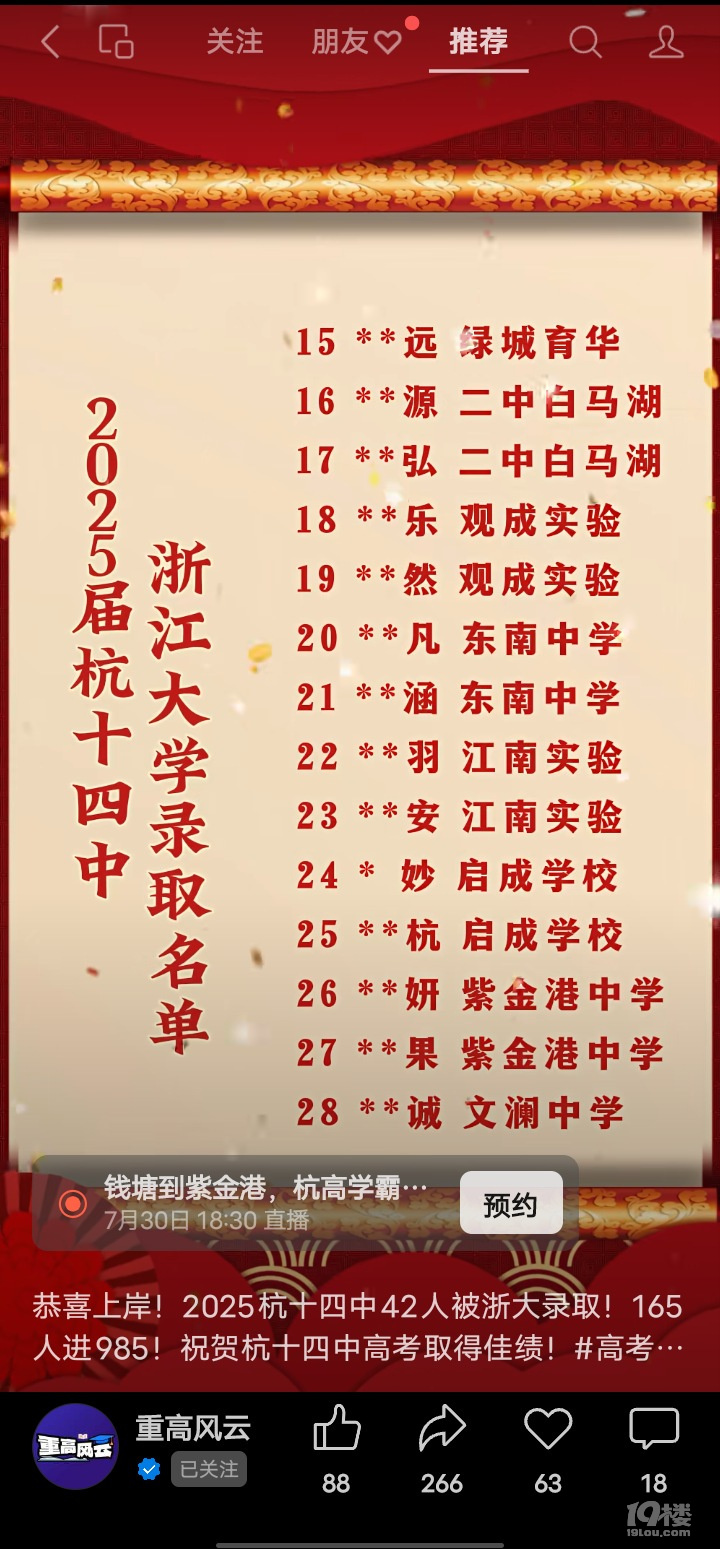 关注
朋友
推荐
15 **远 绿城育华
16 **源 二中白马湖
17 **弘 二中白马湖
18 **乐 观成实验
19 **然 观成实验
20 **凡 东南中学
21 **涵 东南中学
22 **羽 江南实验
23 **安 江南实验
24 * 妙 启成学校
25 **杭 启成学校
26 **妍 紫金港中学
27 **果 紫金港中学
28 **诚 文澜中学
2025届杭十四中
浙江大学录取名单
钱塘到紫金港，杭高学霸…
7月30日 18:30 直播
预约
恭喜上岸！2025杭十四中42人被浙大录取！165
人进985！祝贺杭十四中高考取得佳绩！#高考…
重高风云
重高风云
已关注
88
266
63
18
19楼
19lou.com